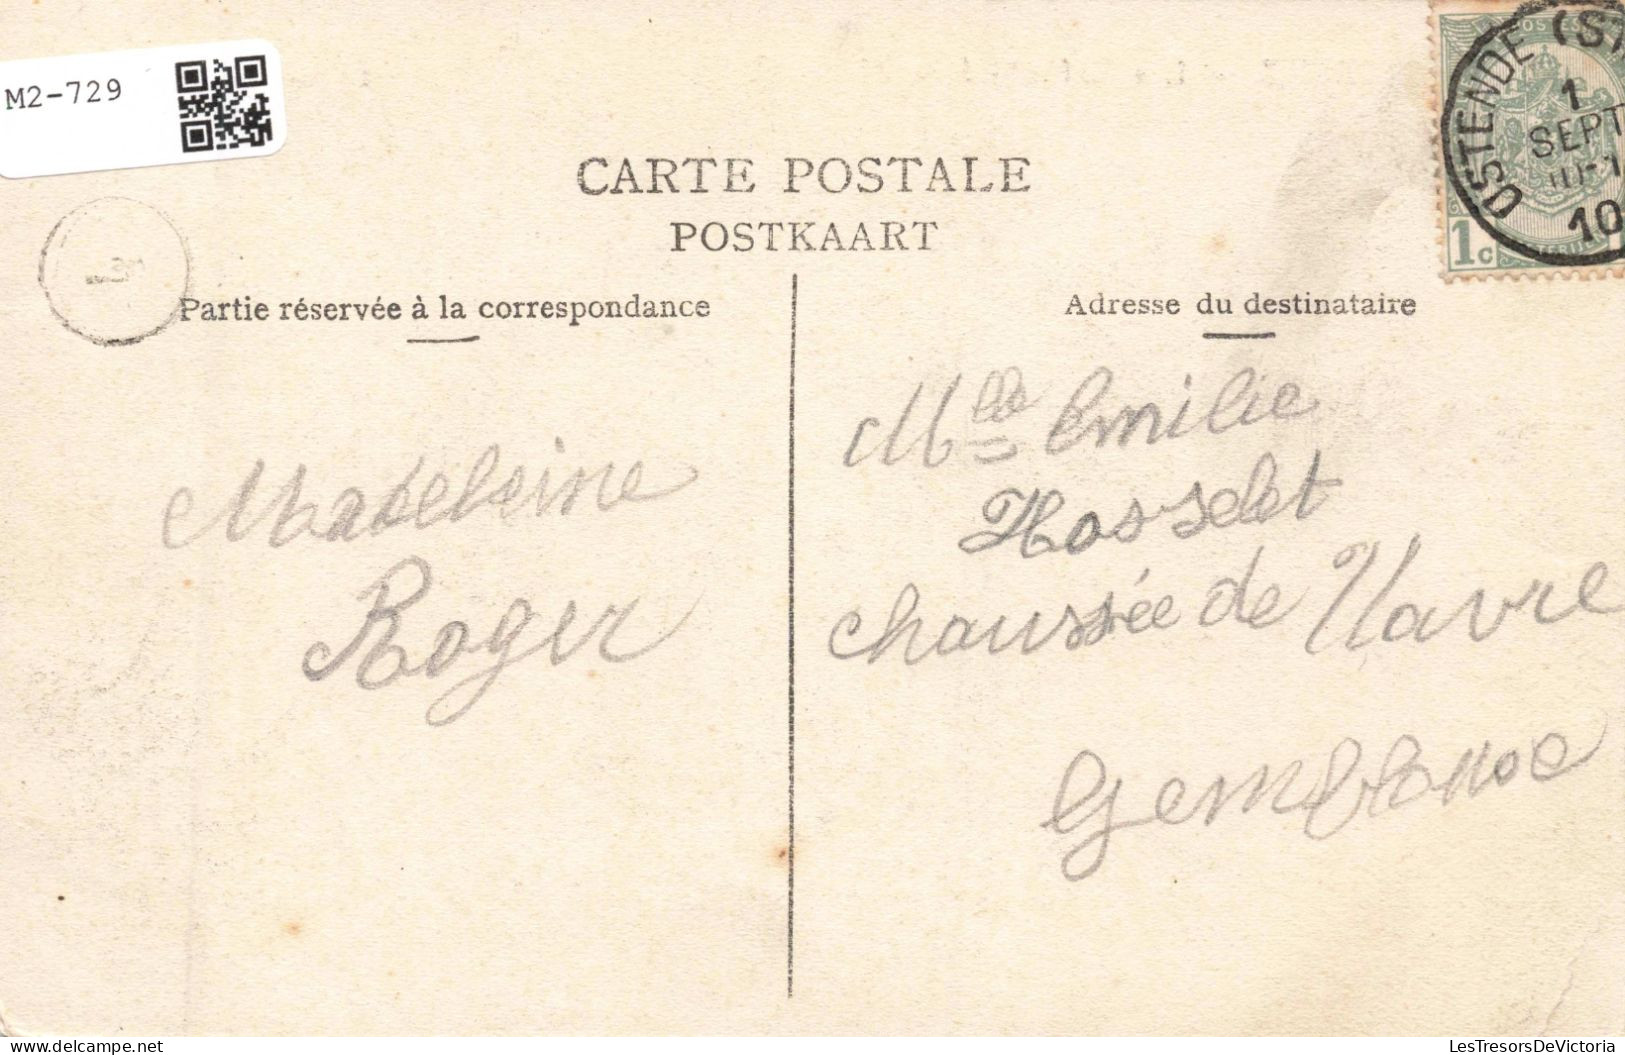 M2-729
CARTE POSTALE
POSTKAART
OSTENDE (ST
1
SEPT
10
1c
Partie réservée à la correspondance
Adresse du destinataire
Madeleine
Roger
Mlle Emilie
Hosselet
chaussée de Navre
Gembloux
LesTresorsDeVictoria
www.delcampe.net
LesTresorsDeVictoria